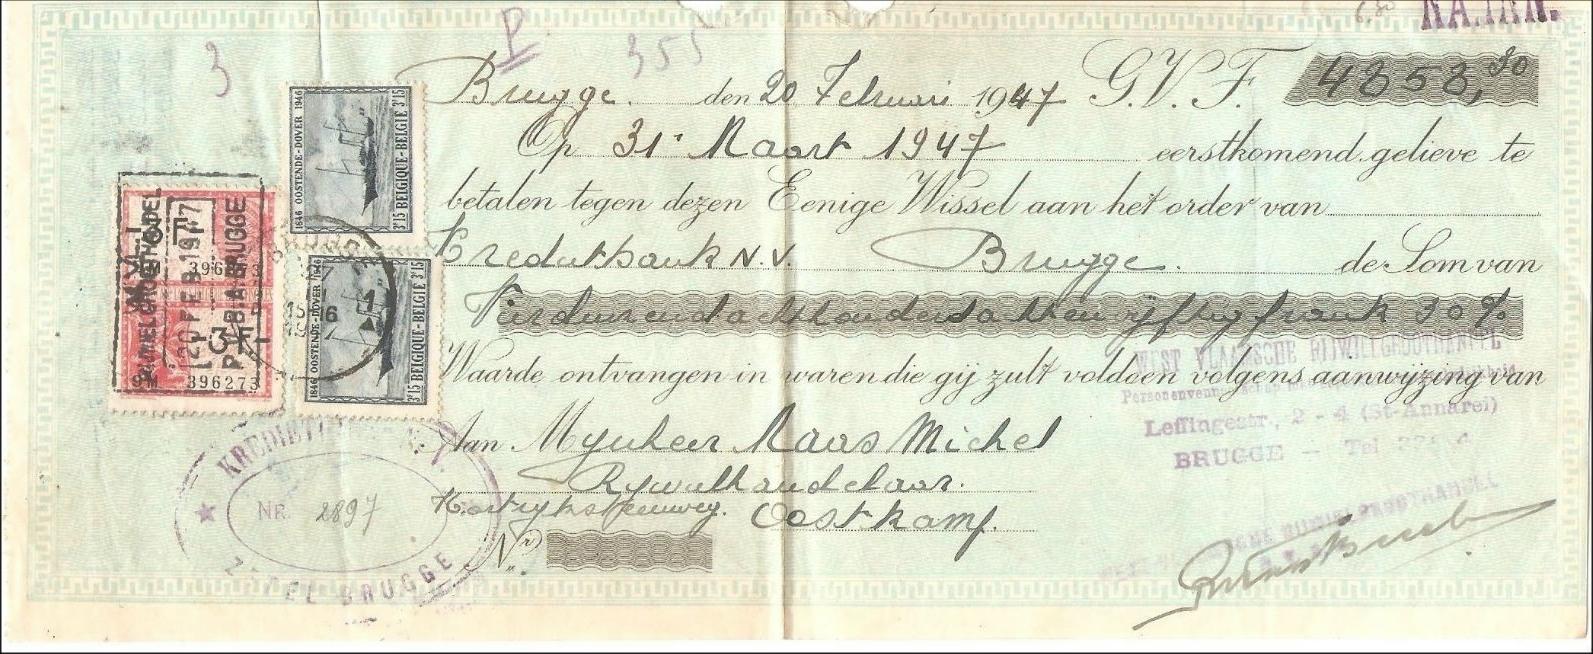 NA.INN.
6,80
3 P 355
Brugge. den 20 Februari 1947 G.V.F. 4858,30
Op 31 Maart 1947 eerstkomend gelieve te
betalen tegen dezen Eenige Wissel aan het order van
Kredietbank N.V. Brugge. de Som van
Vierduizendachthonderdachtenvijftig frank 30%
Waarde ontvangen in waren die gij zult voldoen volgens aanwijzing van
Aan Mynheer Maas Michel
Rywielhandelaar.
Kortrijksteenweg. Oostkamp.
Nr
1846 OOSTENDE-DOVER 1946
3F15 BELGIQUE-BELGIE 3F15
1846 OOSTENDE-DOVER 1946
3F15 BELGIQUE-BELGIE 3F15
BRUGGE
396273
20 FEB 1947
BRUGGE
3F
9M 396273
NR. 2897
ZETEL BRUGGE
WEST VLAAMSCHE RIJWIELGROOTHANDEL
Leffingestr, 2 - 4 (St-Annarei)
BRUGGE - Tel